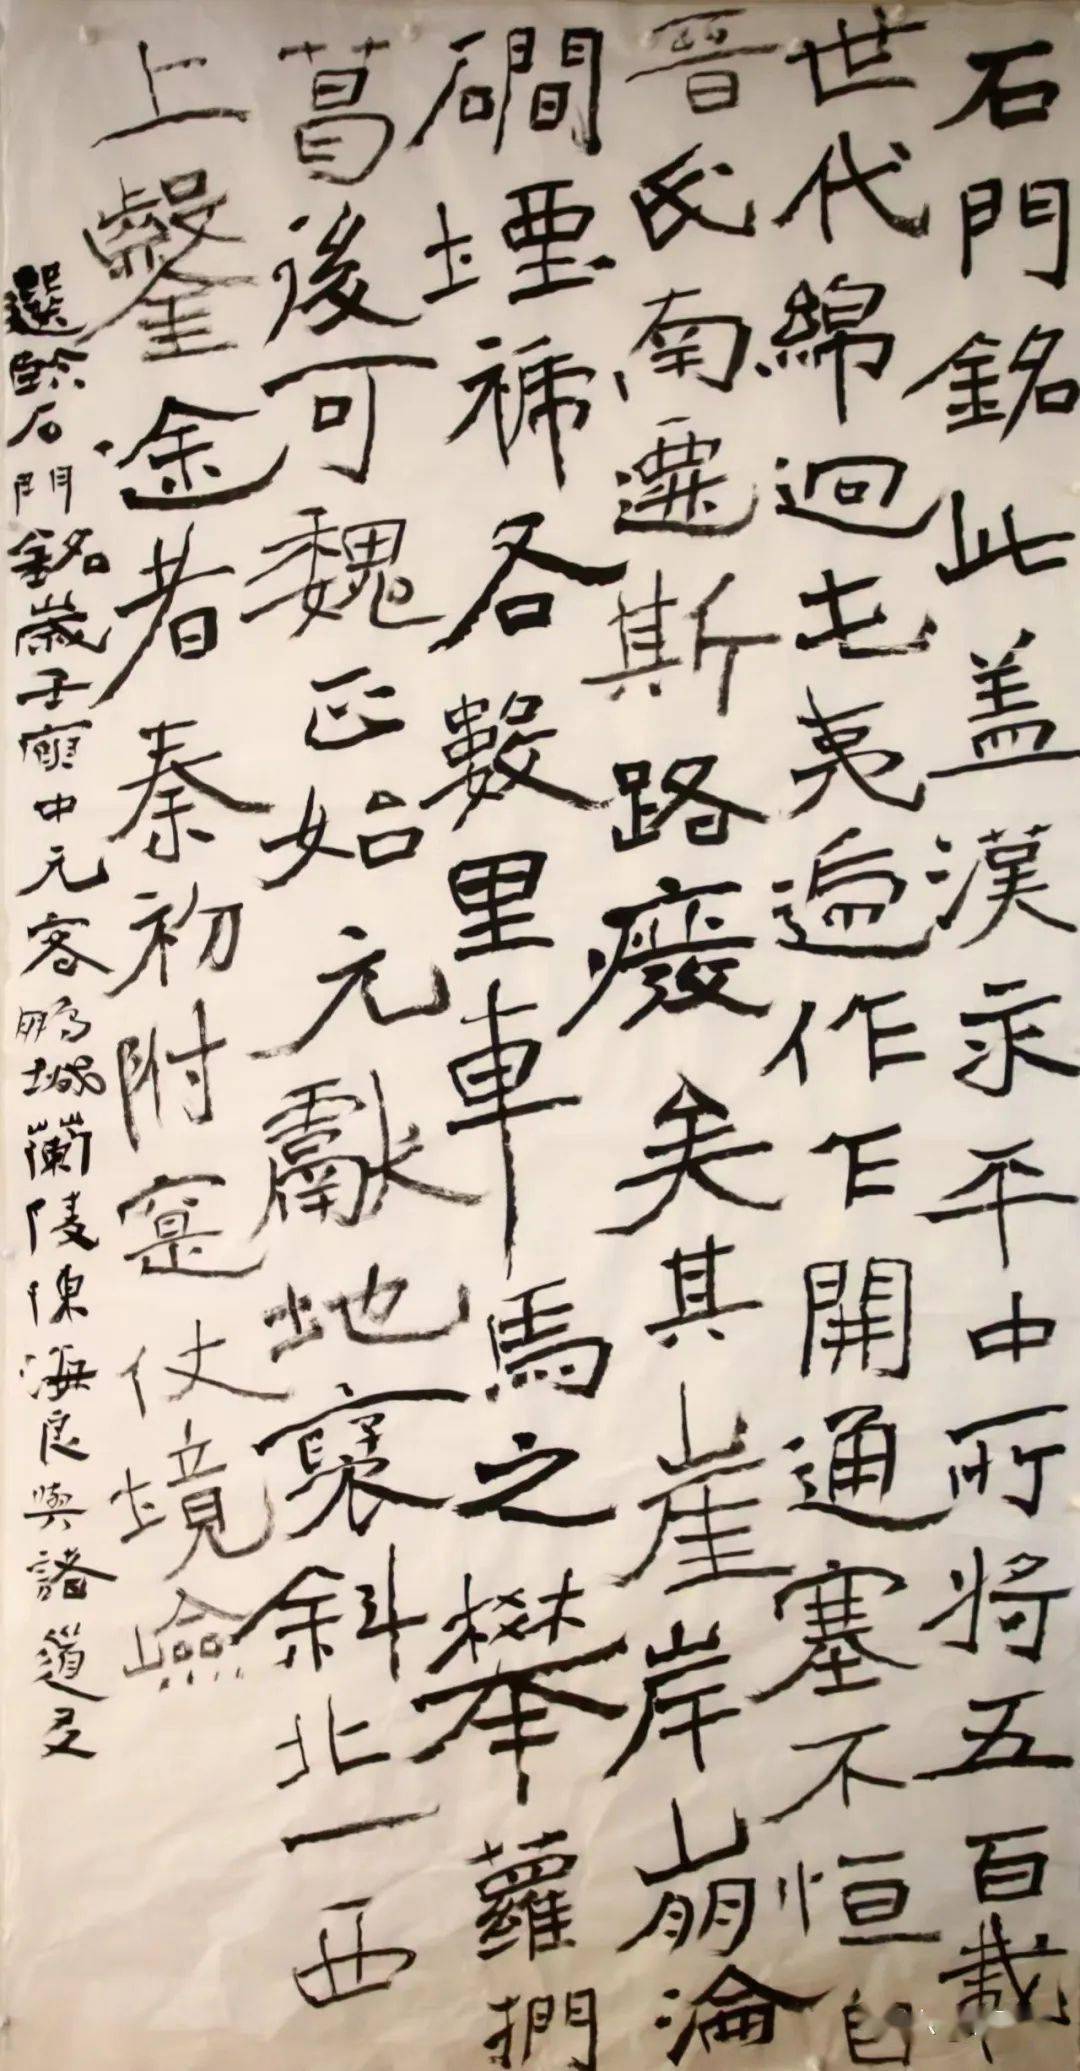 石門銘此盖漢永平中所将五百載
世代綿迴屯夷遍作乍開通塞不恒自
晋氏南遷斯路廢矣其崖岸崩淪
磵堙褫各數里車馬之攀蘿捫
葛後可魏正始元獻地褒斜北一西
上鑿途者秦初附寔仗境險
選臨石門銘歲壬寅中元客鵬城蘭陵陳海良與諸道友